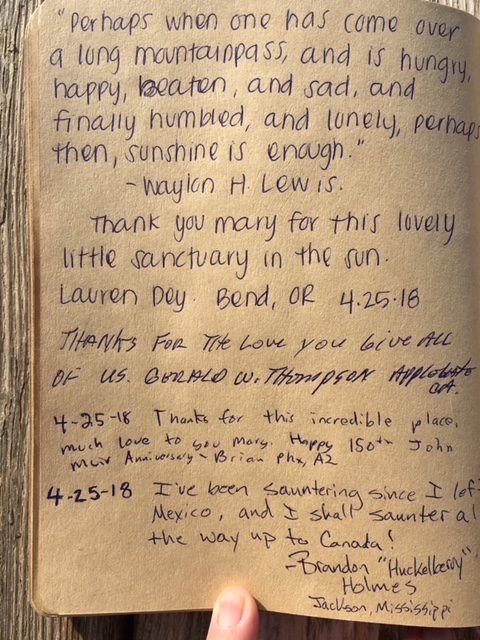 "Perhaps when one has come over
a long mountainpass, and is hungry,
happy, beaten, and sad, and
finally humbled, and lonely, perhaps
then, sunshine is enough."
- Waylon H. Lewis.
Thank you mary for this lovely
little sanctuary in the sun.
Lauren Dey. Bend, OR 4.25.18
THANKS FOR THE LOVE YOU GIVE ALL
OF US. GERALD W. THOMPSON Applegate
CA.
4-25-18 Thanks for this incredible place,
much love to you Mary. Happy 150th John
Muir Anniversary - Brian Phx, AZ
4-25-18 I've been sauntering since I left
Mexico, and I shall saunter al
the way up to Canada!
-Brandon "Huckelberry"
Holmes
Jackson, Mississippi